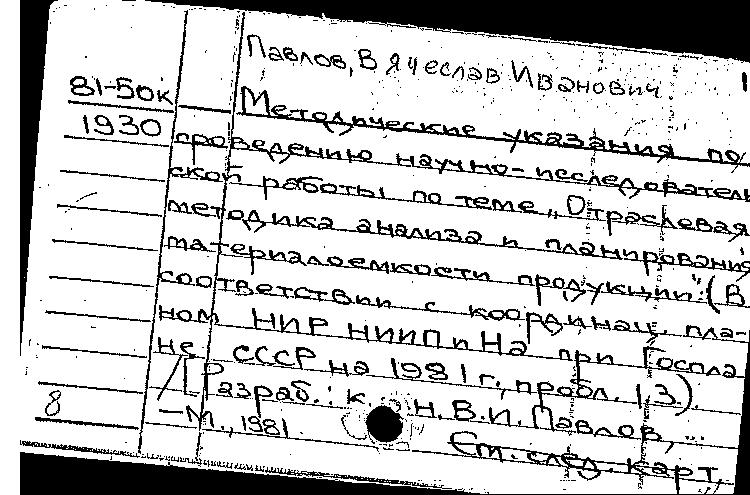 Павлов, Вячеслав Иванович
1
81-50к
Методические указания по
1930
проведению научно-исследователь
ской работы по теме „Отраслевая
методика анализа и планирования
материалоемкости продукции": (В
соответствии с координац. пла-
ном НИР НИИПиН при Госпла
не СССР на 1981 г., пробл. 1,3).
/ Разраб.: к. э. н. В.И. Павлов, ...
8
—М., 1981.
См. след. карт,